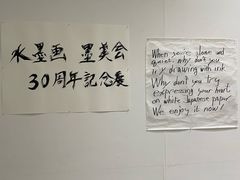 水墨画 墨美会
30周年記念展
When you're alone and
quiet, why don't you
try drawing with ink
Why don't you try
expressing your heart
on white Japanese paper
We enjoy it now!